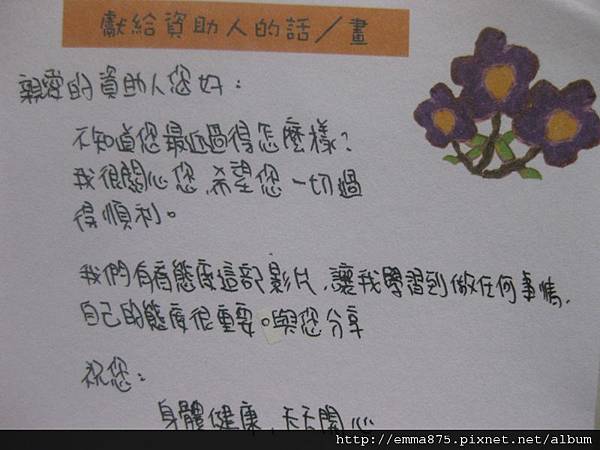 獻給資助人的話／畫
親愛的資助人您好：
不知道您最近過得怎麼樣？
我很關心您，希望您一切過
得順利。
我們有看態度這部影片，讓我學習到做任何事情，
自己的態度很重要。與您分享
祝您：
身體健康，天天開心
http://emma875.pixnet.net/album